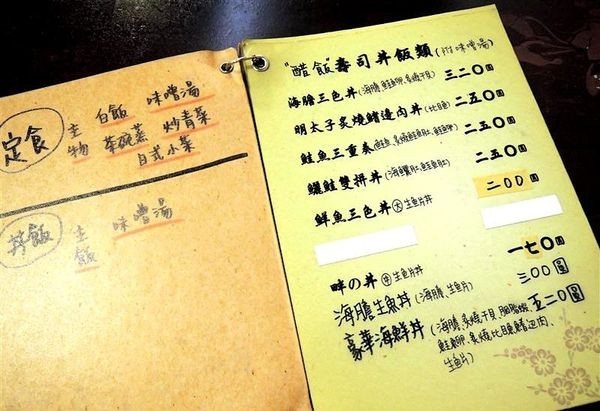 定食
主 白飯 味噌湯
物 茶碗蒸 炒青菜
日式小菜
丼飯
主 味噌湯
飯
"醋飯"壽司丼飯類(附味噌湯)
海膽三色丼(海膽、鮭魚卵、炙燒干貝) 三二〇圓
明太子炙燒鰭邊肉丼(比目魚) 二五〇圓
鮭魚三重奏(生魚、炙燒鮭魚肚、鮭魚卵) 二五〇圓
鱺鮭雙拼丼(海鱺肚、鮭魚肚) 二五〇圓
鮮魚三色丼 大 生魚片丼 二〇〇圓
畔の丼 中 生魚片丼 一七〇圓
海膽生魚丼(海膽、生魚片) 三〇〇圓
豪華海鮮丼(海膽、炙燒干貝、胭脂蝦 五二〇圓
鮭魚卵、炙燒比目魚鰭邊肉、
生魚片)